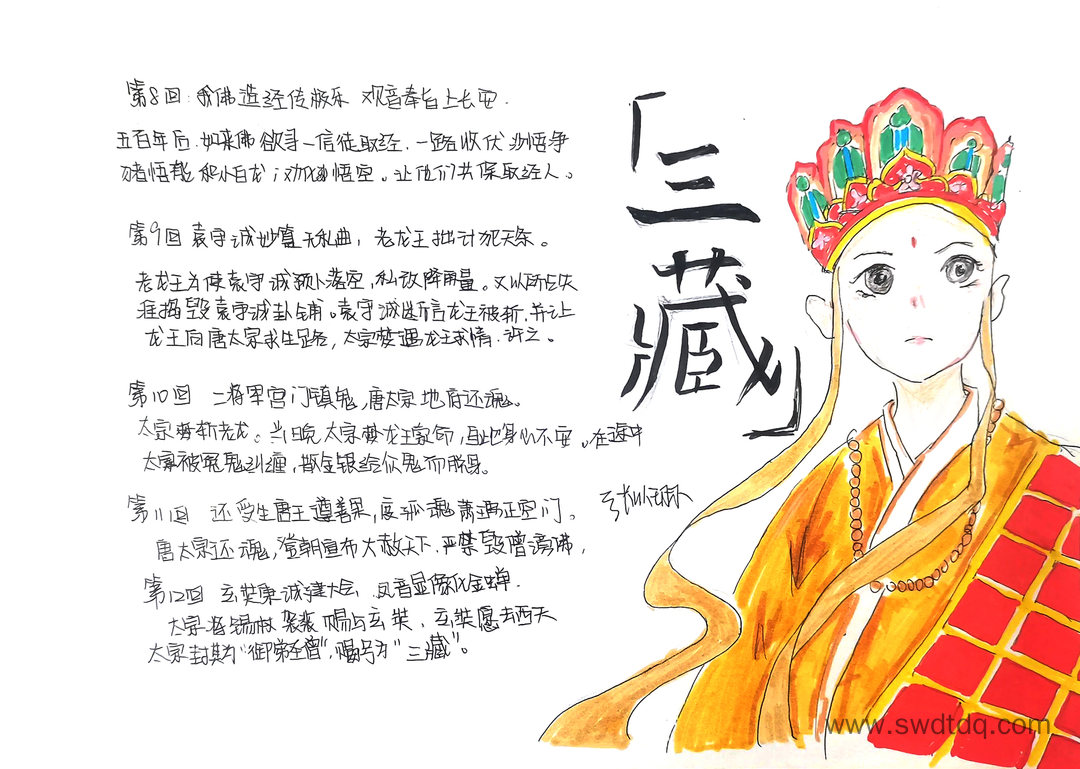 第8回 我佛造经传极乐 观音奉旨上长安.
五百年后,如来佛欲寻一信徒取经,一路收伏沙悟净
猪悟能和小白龙;劝化孙悟空。让他们共保取经人。
第9回 袁守诚妙算无私曲,老龙王拙计犯天条。
老龙王为使袁守诚预卜落空,私改降雨量。又以所占失
准捣毁袁守诚卦铺。袁守诚断言龙王被斩,并让
龙王向唐太宗求生路,太宗梦遇龙王求情,许之。
第10回 二将军宫门镇鬼,唐太宗地府还魂。
太宗斩老龙。当日晚太宗梦龙王索命,自此身心不安。在途中
太宗被冤鬼纠缠,散金银给众鬼而脱身。
第11回 还受生唐王遵善果,度孤魂萧瑀正空门。
唐太宗还魂,登朝宣布大赦天下,严禁毁僧谤佛,
第12回 玄奘秉诚建大会 观音显像化金蝉.
太宗将锡杖袈裟赐与玄奘,玄奘愿去西天
太宗封其为“御弟圣僧”,赐号为“三藏”。
「三藏」
www.swdtdq.com